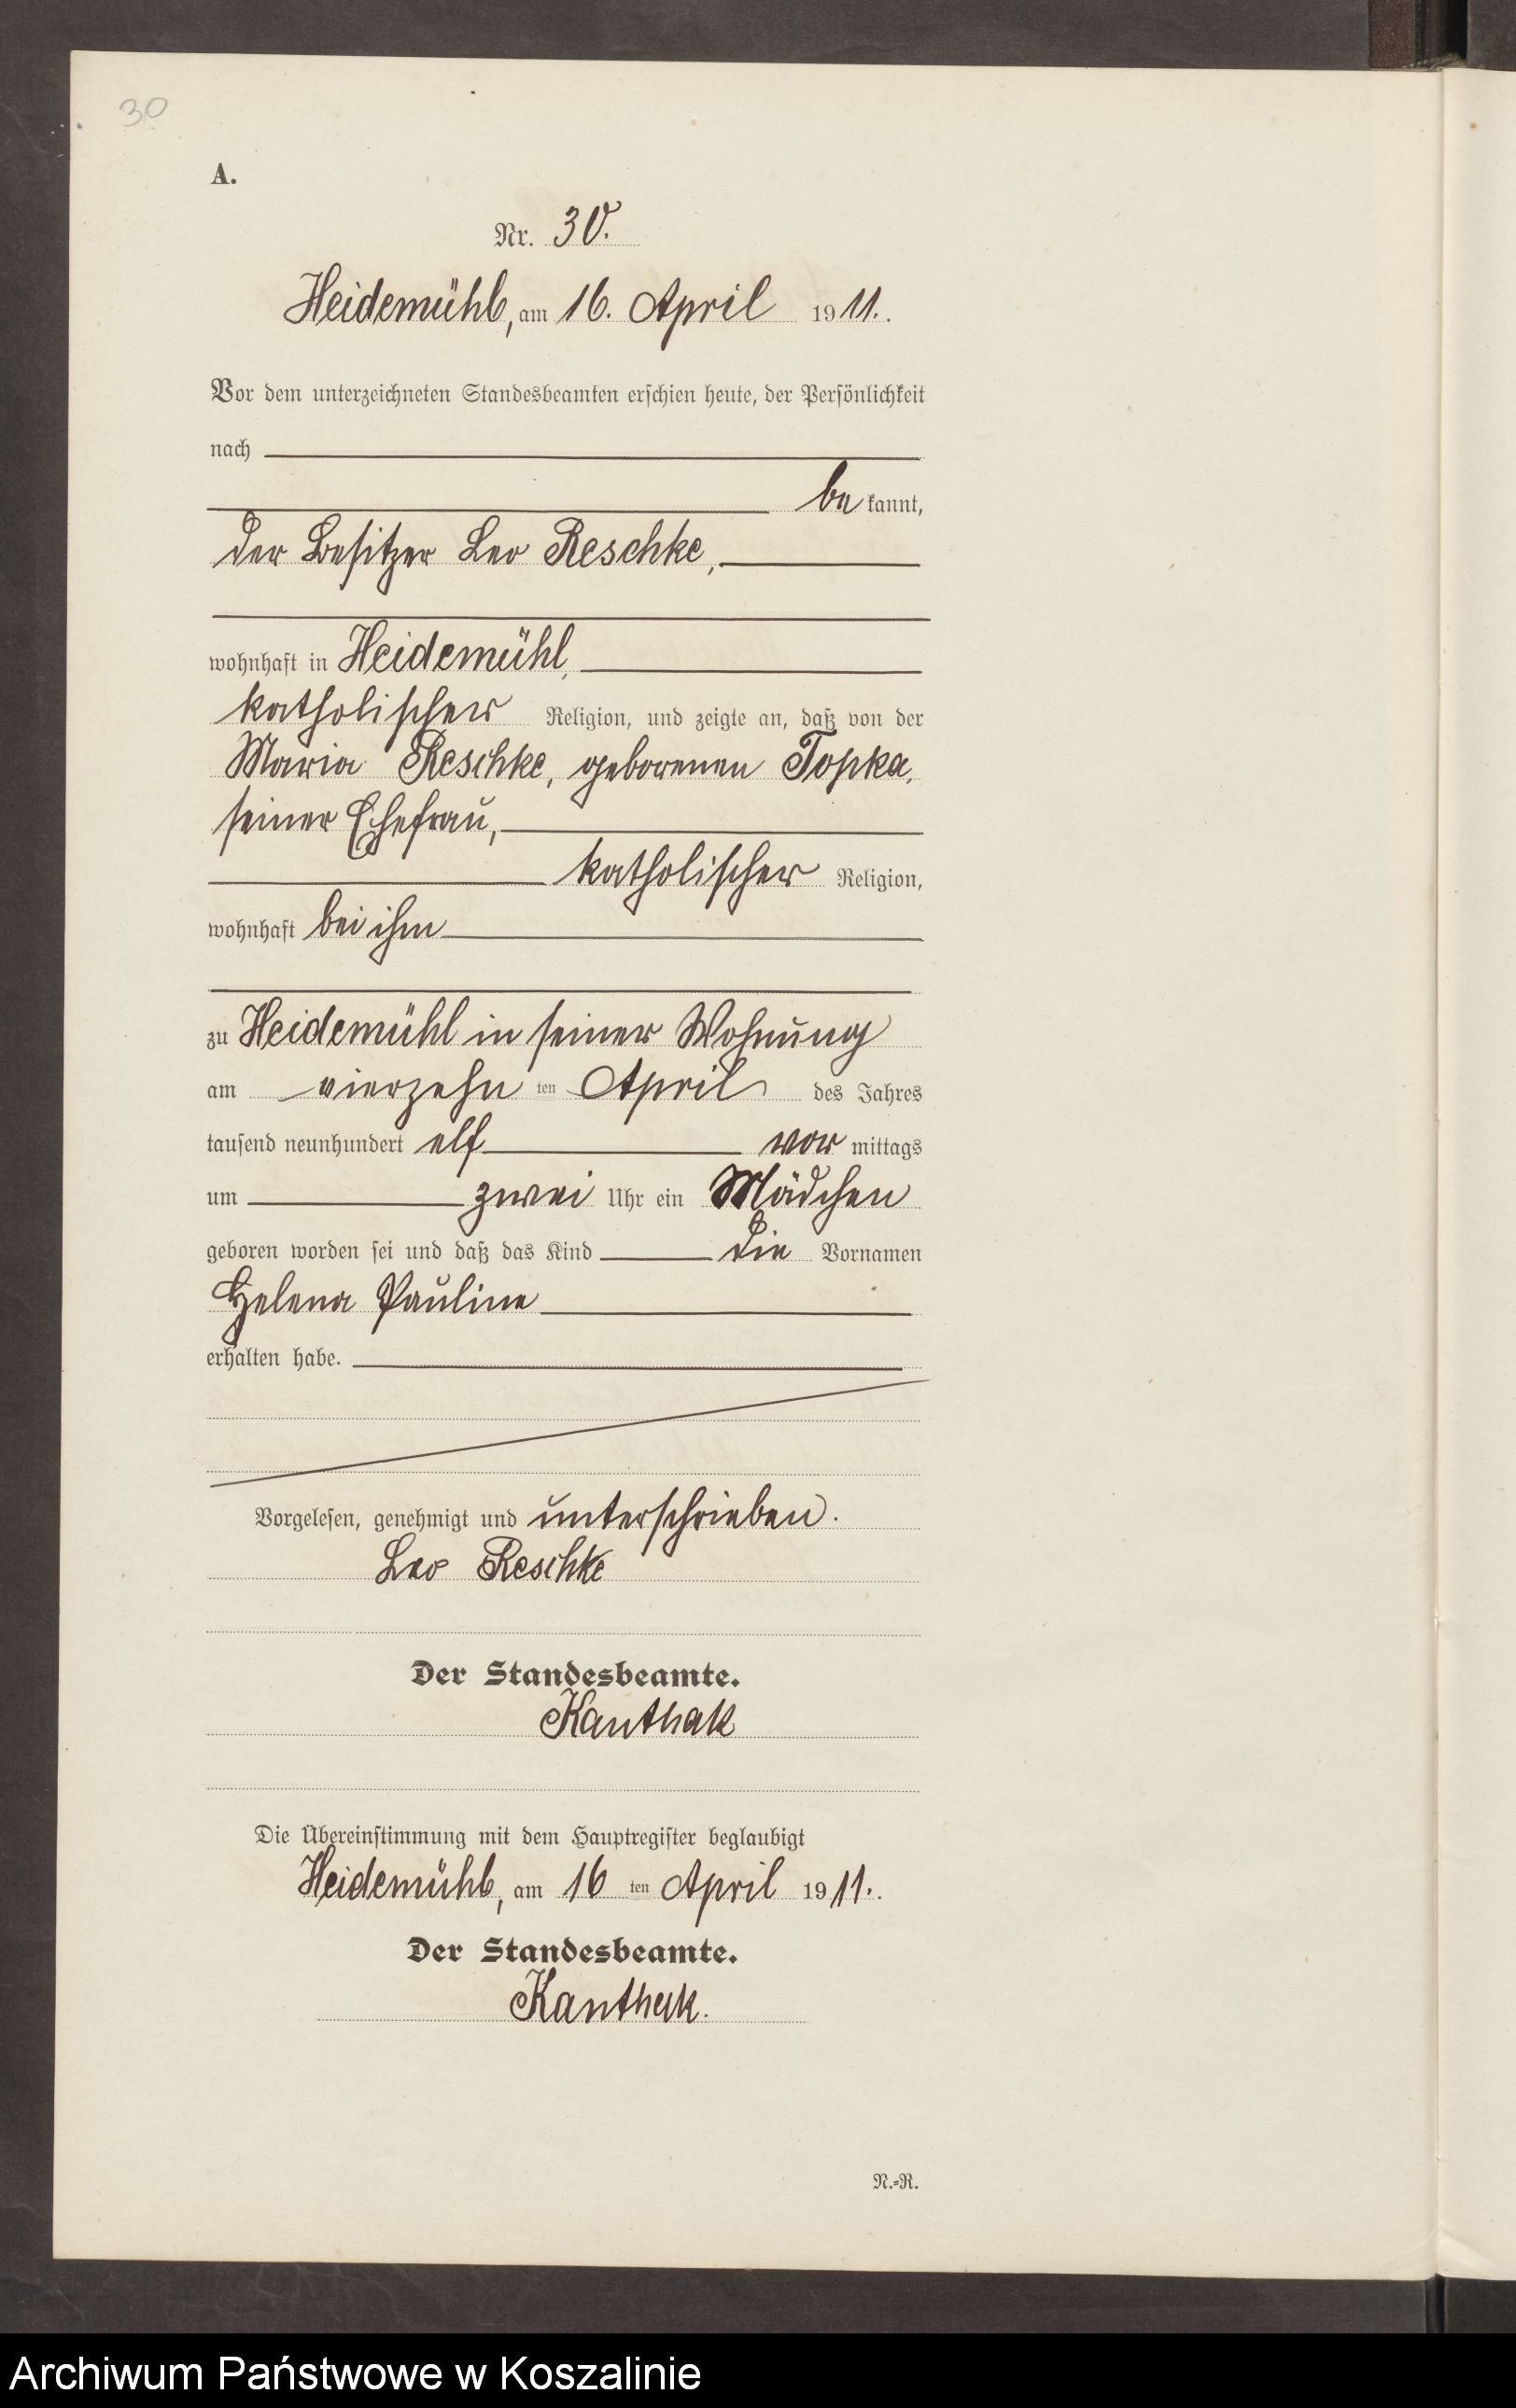 30
A.
Nr. 30.
Heidemühl, am 16. April 1911.
Vor dem unterzeichneten Standesbeamten erschien heute, der Persönlichkeit
nach
be kannt,
der Besitzer Leo Reschke,
wohnhaft in Heidemühl,
katholischer Religion, und zeigte an, daß von der
Maria Reschke, geborenen Topka,
seiner Ehefrau,
katholischer Religion,
wohnhaft bei ihm
zu Heidemühl in seiner Wohnung
am vierzehn ten April des Jahres
tausend neunhundert elf vor mittags
um zwei Uhr ein Mädchen
geboren worden sei und daß das Kind die Vornamen
Helena Pauline
erhalten habe.
Vorgelesen, genehmigt und unterschrieben.
Leo Reschke
Der Standesbeamte.
Kanthak
Die Übereinstimmung mit dem Hauptregister beglaubigt
Heidemühl, am 16 ten April 1911.
Der Standesbeamte.
Kanthak.
N.=R.
Archiwum Państwowe w Koszalinie